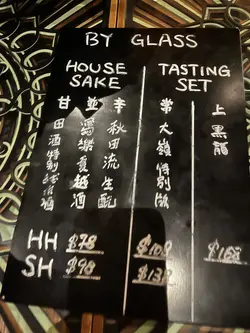 BY GLASS
HOUSE SAKE
TASTING SET
甘 並 辛
常
上
田酒特別純米酒
夏越酒
秋田流生酛
大嶺特別版
黒龍
HH $78 $108 $168
SH $98